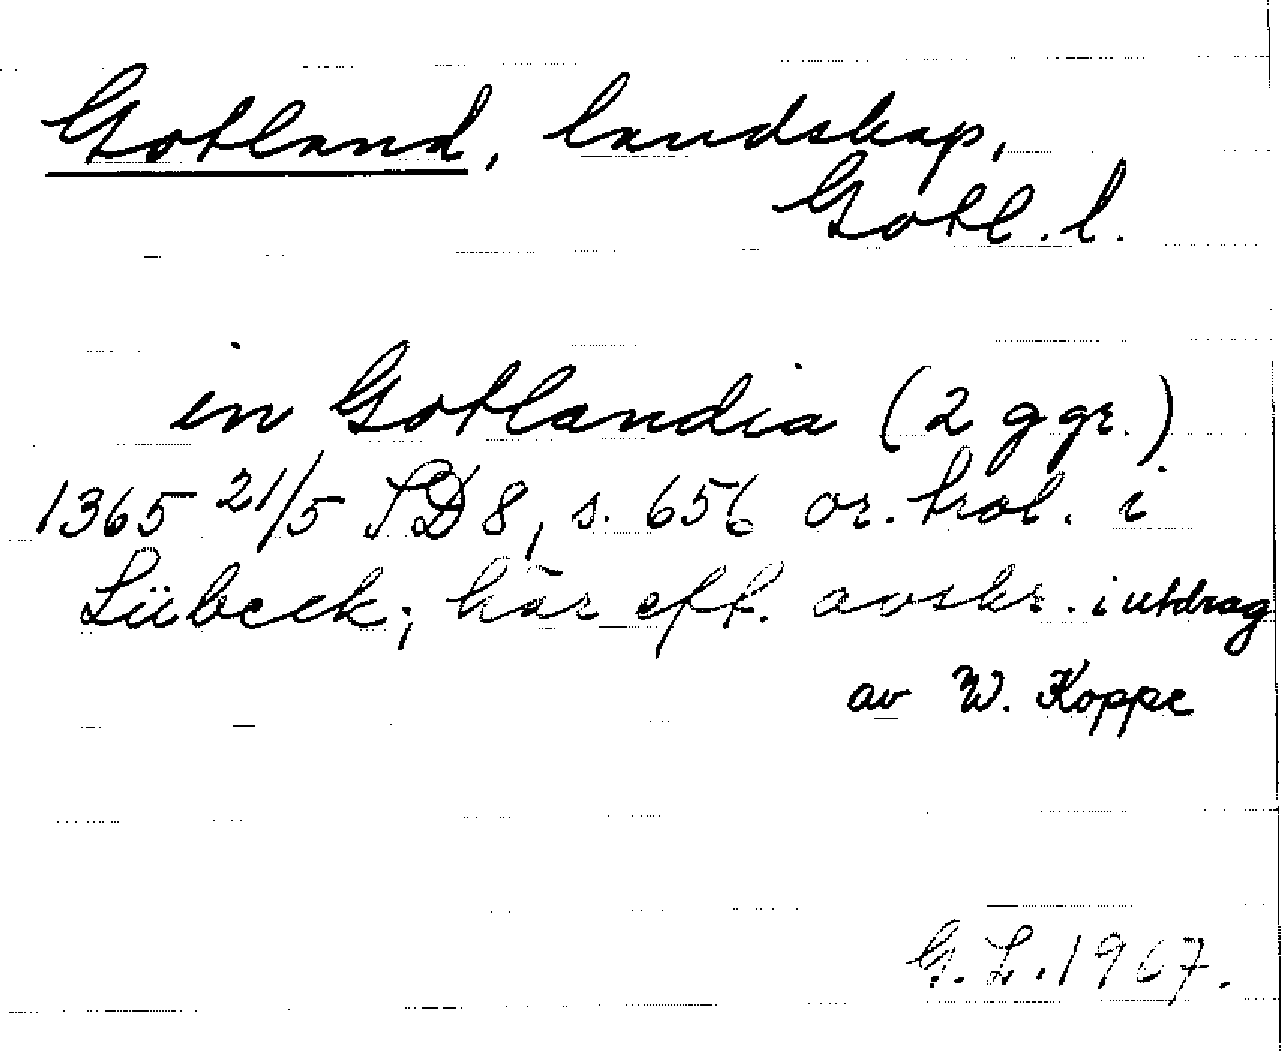 Gotland, landskap,
Gotl. l.
in Gotlandia (2 ggr.)
1365 21/5 SD 8, s. 656 or. trol. i
Lübeck; här eft. avskr. i utdrag
av W. Koppe
G. L. 1967.